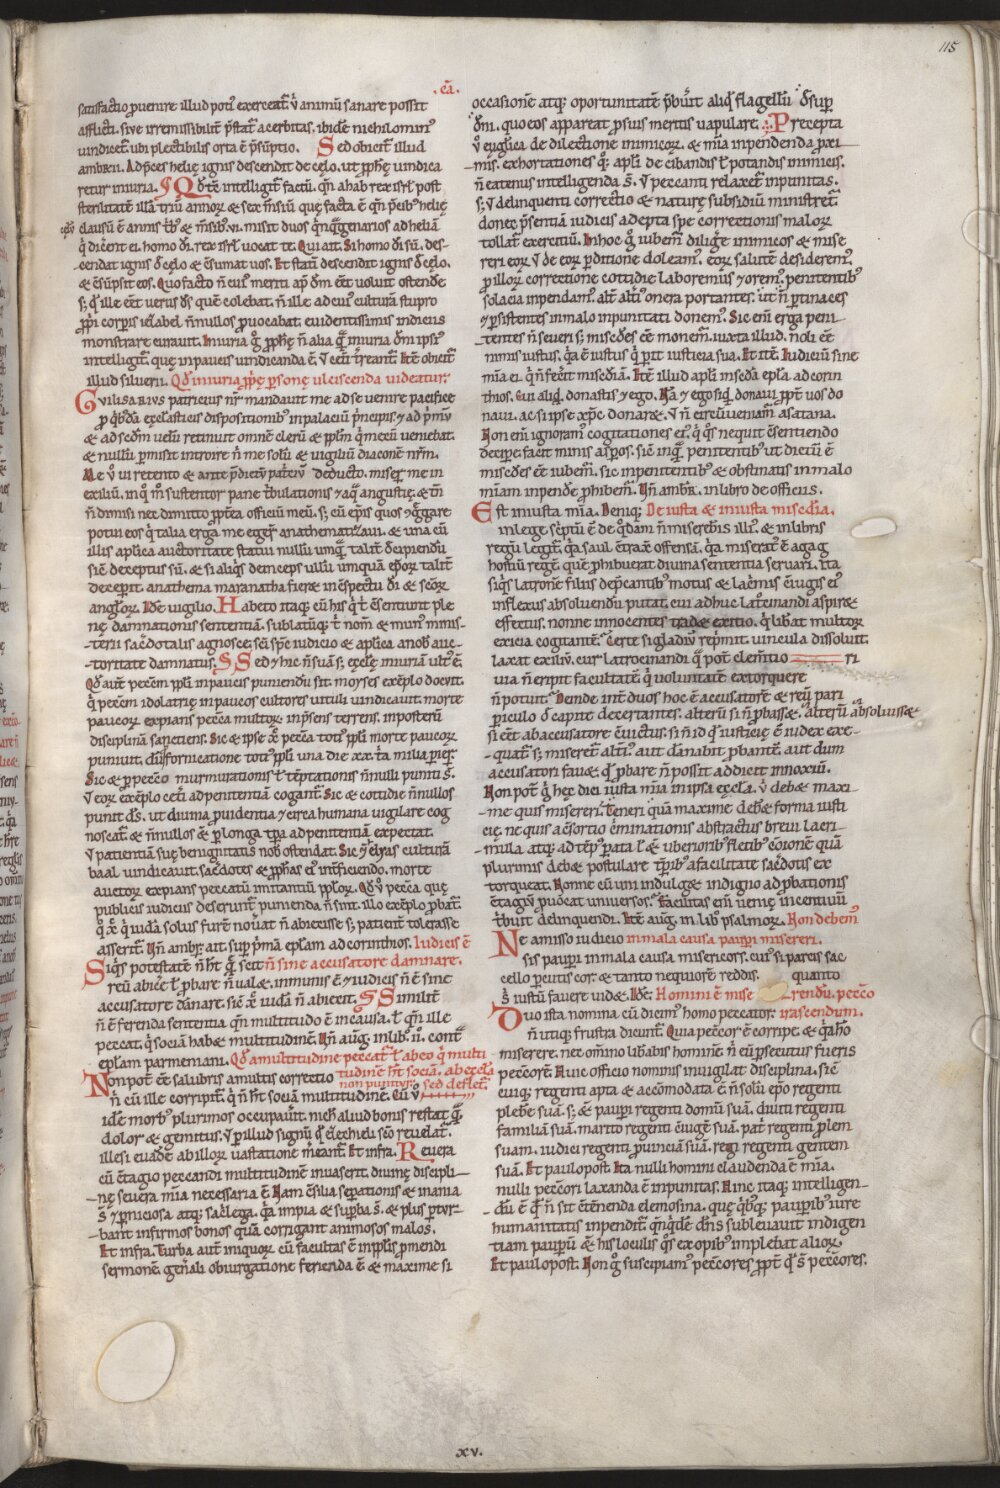 115
.cā.
satisfactio puenire illud poti exerceat ut animū sanare possit
afflicti. sive irremissibilit pstat acerbitas. ibidē nichilomin
vindicet ubi plectibilis orta ē psūptio. Sed obicit illud
ambitiosi. Ad pces helię ignis descendit de cęlo. ut pphę uindica
retur iniuria. Qd tñ intelligit factū. qñ ahab rex isrl post
sterilitatē illā triū annorꝝ & sex msiū quę facta ē qñ pcibꝰ helię
clausū ē annis tbꝰ & msibꝰ vi. misit duos qnqgenarios ad heliā
q dicent ei. homo di. rex isrl uocat te. Qui ait. Si homo di sū. des-
cendat ignis d cęlo & csumat uos. Et statī descendit ignis d cęlo.
& csūpsit eos. Quo facto
monstrare curauit. Iniuria g pphę ñ alia q iniuria dni ipsi
intelligit. quę in paucis uindicanda ē.
illud siluerii. Qd iniuria pprię psonę ulciscenda uideatur.
Guilisarius patricius nr mandauit me ad se venire pacifice
p qbda ecclesticis dispositionibꝰ in palaciū pncipis. & ad pmū
& ad scdm uelū retinuit omnē clerū & pplm q mecū veniebat.
& nullū pmisit introire ñ me solū & vigiliū diaconē nrm.
exiliū. in q m sustentor pane tbulationis & aq angustię. & tñ
ñ dimisi nec dimitto ppterea officiū meū. s; cū epis quos cggare
potui eos q talia erga me egert anathematizaui. & una cū
illis aplica auctoritate statui nullū umq talit decipiendū
sic deceptus sū. & si aliqs deinceps ullū umquā eporꝝ talit
decepit. anathema maranatha fieret in cspectu di & scorꝝ
anglorꝝ. Idē vigilio. Habeto itaq cū his q t csentiunt ple
nę damnationis sententiā. sublatūq t nom & mun minis-
terii sacdotalis agnosce. sci sps iudicio & aplica a nob auc-
toritate damnatus. Sed & hic ñ suā s; ecclę iniuriā ultꝰ ē.
Qd aut peccm ppli in paucis puniendū sit. moyses exēplo docuit.
q peccm idolatrię in paucos cultores vituli vindicauit. morte
paucorꝝ expians pcca multorꝝ. in psens terrens. in posterū
disciplinā sanciens. Sic & ipse x pccta toti ppli morte paucorꝝ
puniuit. dū p fornicatione toti ppli una die xx.ta milia pierꝝ
Sic & p pccto murmurationis t temptationis ñnulli puniti s.
V eorꝝ exēplo ceti ad penitentiā cogant. Sic & cotidie ñnullos
punit ds. ut diuina puidentia & circa humana vigilare cog
noscat. & ñnullos ē p longa tpa ad penitentiā expectat.
V patientiā suę benignitatis nob ostendat. Sic & elyas culturā
baal vindicauit. sacdotes & pphas ei interficiendo. morte
auctorꝝ expians peccatū imitantiū pplorꝝ. Qd v pecca quę
publicis iudiciis deserunt punienda ñ sint. illo exēplo pbat.
q x q iudā solus furē nouat ñ abiecisse s; patient tolerasse
asserit. Uñ ambr ait. sup pmā eplam ad corinthos. Iudicis ē
Siqs potestatē ñ ht q scit ñ sine accusatore damnare.
reū abicit t pbare ñ valet. inmunis ē. & iudicis ñ ē sine
accusatore dānare. sic x iudā ñ abiecit. Similit
ñ ē ferenda sententia qn multitudo ē in causa. t qn ille
peccat. q sociā habet multitudinē. Uñ aug. in lib. ii. cont
eplam parmeniani. Qd a multitudine peccat t ab eo q multi
Non pot ee salubris a multis correctio tudinē ht sociā. ab eccla
non punitur. sed deflet.
ñ cū ille corripit q ñ ht sociā multitudinē. Cū v
idē morbꝰ plurimos occupauit. nich aliud bonis restat q
dolor & gemitus. V p illud signū q ezechieli sco reuelat.
illesi euadē ab illorꝝ uastatione meant. Et infra. Reuera
cū ctagio peccandi multitudinē inuaserit. diuinę discipli-
nę seuera mia necessaria ē. Nam csilia sepationis & inania
s & pniciosa atq; saclega. qa impia & supba s. & plus ptur-
bant infirmos bonos quā corrigant animosos malos.
Et infra. Turba aut iniquorꝝ cū facultas ē in pplis pmendi
sermonē. gnali obiurgatione ferienda ē & maxime si
occasionē atq; oportunitatē pbuit aliq flagellū dsup
dni. quo eos appareat p suis meritis vapulare. Precepta
v euglica de dilectione inimicorꝝ. & mia inpendenda pxi-
mis. exhortationes q; apli de cibandis t potandis inimicis.
ñ eatenus intelligenda s. V peccanti relaxet inpunitas.
s; v delinquenti correctio & naturę subsidiū ministret.
donec psentiā iudicis adepta spe correctionis malorꝝ
tollat exercitiū. In hoc g iubem diligē inimicos & mise
reri eorꝝ. V de eorꝝ pditione doleam. eorꝝ salutē desiderem.
p illorꝝ correctione cotidie laboremus & orem. penitentibꝰ
solacia inpendam. alt altiꝰ onera portantes. ut ñ ptinaces
& psistentes in malo inpunitati donem. Sic eni erga peni-
tentes ñ seueri s; misecdes ee monem. iuxta illud. noli ee
nimis iustus. qa ē iustus q pit iusticia sua. Et ite. Iudiciū sine
mia ei. q ñ fecit misecdiā. Itē illud apli in scda epla ad corin
thios. Cui aliq donastis & ego. Nā & ego si qd donaui ppt vos do
naui. ac si ipse xpc donaret. V ñ circūueniam a satana.
Non eni ignoram cogitationes ei. q qs nequit csentiendo
decipe facit nimis aspos. sic in q penitentibꝰ ut dictū ē
misecdes ee iubem. sic inpenitentibꝰ & obstinatis in malo
miam inpendē phibem. Uñ ambr. in libro de officiis.
Est iniusta mia. Deniq; De iusta & iniusta misecdia.
in lege scptū ē de qdam ñ misereberis illi. & in libris
regū legit. qa saul ctraxit offensā. qa misert ē agag
hostiū regē. quē phibuerat diuina sententia seruari. Vta
siqs latronē filiis depcantibꝰ motus & lacmis cuigis ei
inflexus absoluendū putat. cui adhuc latcinandi aspiret
effectus. nonne innocentes tradet exitio. q libat multorꝝ
exicia cogitante. Certe si gladiū repmit. vincula dissoluit.
laxat exiliū. cur latrocinandi q pot clemtio ri
via ñ eripit facultatē. q voluntatē extorquere
ñ potuit. Deinde int duos hoc ē accusatorē & reū pari
piculo d capite decertantes. alterū si ñ pbasset. alterū absoluisset
si eet ab accusatore cuictus. si ñ id q iusticię ē iudex exe-
quat. s; miseret altiꝰ. aut dānabit pbantē. aut dum
accusatori fauet. q pbare ñ possit addicit innoxiū.
Non pot g hęc dici iusta mia. in ipsa eccla. v debet maxi-
me quis misereri. Teneri qua maxime debet forma iusti
cię. ne quis a csortio cminationis abstractus breui lacri-
mula atq; ad tep pata t & uberioribꝰ fletibꝰ coionē quā
plurimis debet postulare tpibꝰ a facilitate sacdotis ex
torqueat. Nonne cū uni indulget indigno ad pbationis
ctagiū puocat uniuersos. Facilitas eni uenię incentiuū
tbuit delinquendi. Itē aug. in. lib psalmorꝝ. Non debem
Ne amisso iudicio in mala causa paupi misereri.
sis paupi in mala causa misericors. cui si parcis sac
cello pcutis cor. & tanto nequiorē reddis. quanto
s iustū fauere videt. Idē. Homini ē mise rendū. peccto
Duo ista nomina cū dicim homo peccator. irascendum.
ñ utiq; frustra dicunt. Quia peccor ē corripe. & qa ho
miserere. nec omino libabis hominē. ñ eū psecutus fueris
peccorē. Huic officio nominis inuigilat disciplina. sic
cuiq; regenti apta & accomodata ē. ñ solū epo regenti
plebē suā. s; & paupi regenti domū suā. diuiti regenti
familiā suā. marito regenti ciugē suā. pat regenti plem
suam. iudici regenti puinciā suā. regi regenti gentem
suā. Et paulopost. Ita nulli homini claudenda ē mia.
nulli peccori laxanda ē inpunitas. Hinc itaq intelligen-
dū ē q ñ sit ctēnenda elemosina. que qbq; paupibꝰ iure
humanitatis inpendit. qnqdē dns subleuauit indigen
tiam paupū & his loculis qs ex opibꝰ implebat aliorꝝ.
Et paulopost. Non g suscipiamꝰ peccores ppt q s peccores.
xv.